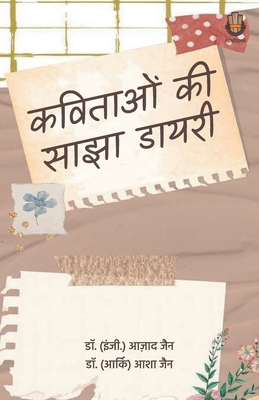 कविताओं की
साझा डायरी
डॉ. (इंजी.) आज़ाद जैन
डॉ. (आर्कि) आशा जैन